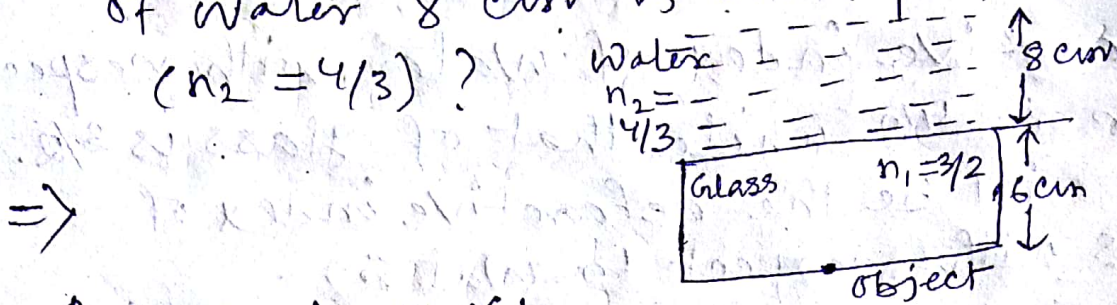 of water 8 cm
(n₂ = 4/3) ?
Water
n₂ =
4/3
8 cm
Glass n₁ = 3/2
6 cm
=>
object